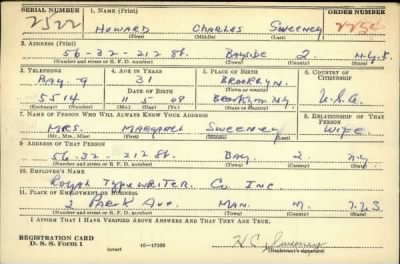 SERIAL NUMBER 1. NAME (Print) ORDER NUMBER
2522 HOWARD CHARLES SWEENEY
(First) (Middle) (Last)
2. ADDRESS (Print)
56-32-212 St. BAYSIDE 2 N.Y.
(Number and street or R. F. D. number) (Town) (County) (State)
3. TELEPHONE 4. AGE IN YEARS 5. PLACE OF BIRTH 6. COUNTRY OF CITIZENSHIP
BAY-9 31 BROOKLYN.
DATE OF BIRTH (Town or county)
5514 11 08 BROOKLYN N.Y. U.S.A.
(Exchange) (Number) (Mo.) (Day) (Yr.) (State or country)
7. NAME OF PERSON WHO WILL ALWAYS KNOW YOUR ADDRESS 8. RELATIONSHIP OF THAT PERSON
MRS. MARGARET SWEENEY WIFE.
(Mr., Mrs., Miss) (First) (Middle) (Last)
9. ADDRESS OF THAT PERSON
56-32-212 St. BAY. 2. N.Y.
(Number and street or R. F. D. number) (Town) (County) (State)
10. EMPLOYER'S NAME
ROYAL TYPEWRITER Co INC
11. PLACE OF EMPLOYMENT OR BUSINESS
2 PARK AVE. MAN. M.
(Number and street or R. F. D. number) (Town) (County) (State)
I AFFIRM THAT I HAVE VERIFIED ABOVE ANSWERS AND THAT THEY ARE TRUE.
REGISTRATION CARD
D. S. S. Form 1 (over) 16—17105 H C Sweeney
(Registrant's signature)